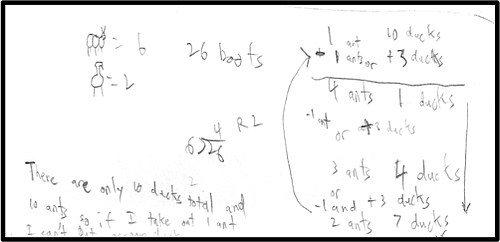 = 6
26 boots
= 2
4 R2
6)26
There are only 10 ducks total and
10 ants so if I take out 1 ant
I can't
1 ant 10 ducks
- 1 ant or +3 ducks
4 ants 1 ducks
-1 ant
or +3 ducks
3 ants 4 ducks
or
-1 and +3 ducks
2 ants 7 ducks